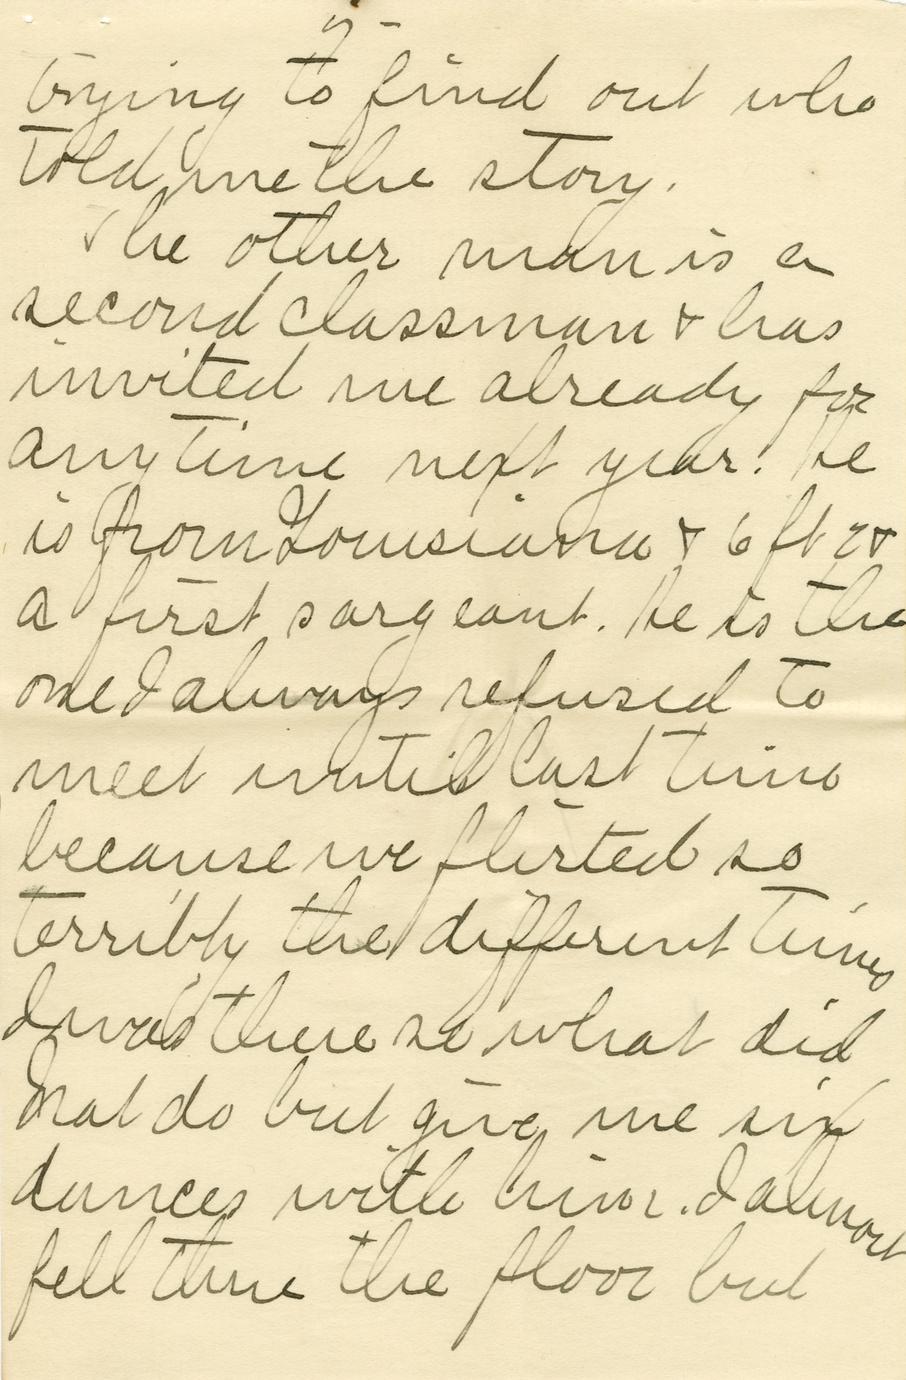 trying to find out who
told me the story.
The other man is a
second classman & has
invited me already for
anytime next year. He
is from Louisiana & 6 ft 2 &
a first sargeant. He is the
one I always refused to
meet until last time
because we flirted so
terribly the different times
I was there so what did
Nat do but give me six
dances with him. I almost
fell thru the floor but